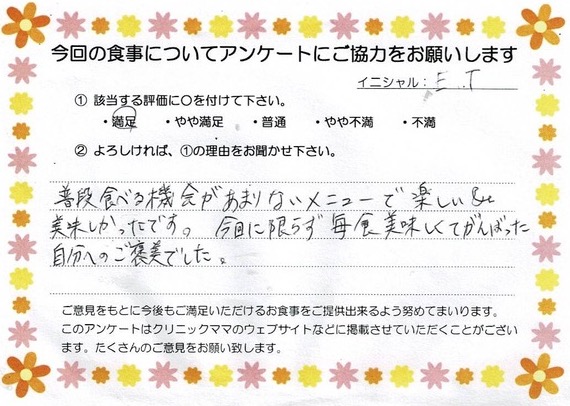 今回の食事についてアンケートにご協力をお願いします
イニシャル：E.T
① 該当する評価に○を付けて下さい。
・満足 ・やや満足 ・普通 ・やや不満 ・不満
② よろしければ、①の理由をお聞かせ下さい。
普段食べる機会があまりないメニューで楽しい&
美味しかったです。今回に限らず毎食美味しくてがんばった
自分へのご褒美でした。
ご意見をもとに今後もご満足いただけるお食事をご提供出来るよう努めてまいります。
このアンケートはクリニックママのウェブサイトなどに掲載させていただくことがござい
ます。たくさんのご意見をお願い致します。